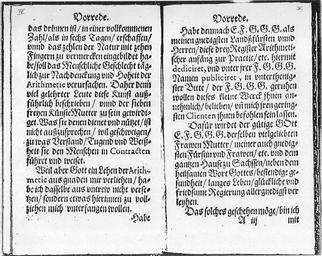 IV
Vorrede.
das drinnen ist / in einer vollkommenen
Zahl / als in sechs Tagen / erschaffen /
und das zehlen der Natur mit zehen
Fingern zu vermercken eingebildet ha-
be / soll das Menschliche Geschlecht täg-
lich zur Nachdenckung und Hoheit der
Arithmetic verursachen. Daher denn
viel gelehrter Leute diese Kunst auß-
führlich beschrieben / und der sieben
freyen Künste Mutter zu seyn gewür-
diget. Was sie denen dienet und nützet / ist
nicht außzusprechen / wil geschweigen /
zu was Verstand / Tugend und Weiß-
heit sie den Menschen in Contracten
führet und weiset.
Weil aber Gott ein Lehen der Arith-
metic aus gnaden mir verliehen / ha-
be ich dasselbe aus untrew nicht verse-
tzen / sondern etwas hierinnen zu voll-
ziehen mich unterfangen wollen.
Habe
V
Vorrede.
Habe demnach E. F. G. G. G. als
meinen gnedigsten Landsfürsten und
Herren / diese drey Register Arithmeti-
scher anfäng zur Practic / etc. hiermit
dediciret, und unter jrer F. G. G. G.
Namen publiciret, in unterthenig-
ster Bitte / der F. G. G. G. geruhen
wollen dieses kleine Werck jhnen an-
nehmlich / belieben / und mich jren gering-
sten Clienten jhnen befohlen sein lassen.
Dafür wirdet der gütige GOtt
E. F. G. G. G. derselben vielgeliebten
Frawen Mutter / meiner auch gnedig-
sten Fürstin und Frawen / etc. und dem
gantzen Hause zu Sachsen / neben dem
heilsamen Wort Gottes / bestendige ge-
sundheit / langes Leben / glückliche und
friedsame Regierung allergnedigst ver-
leyhen.
Das solches geschehen möge / bin ich
A iij mit